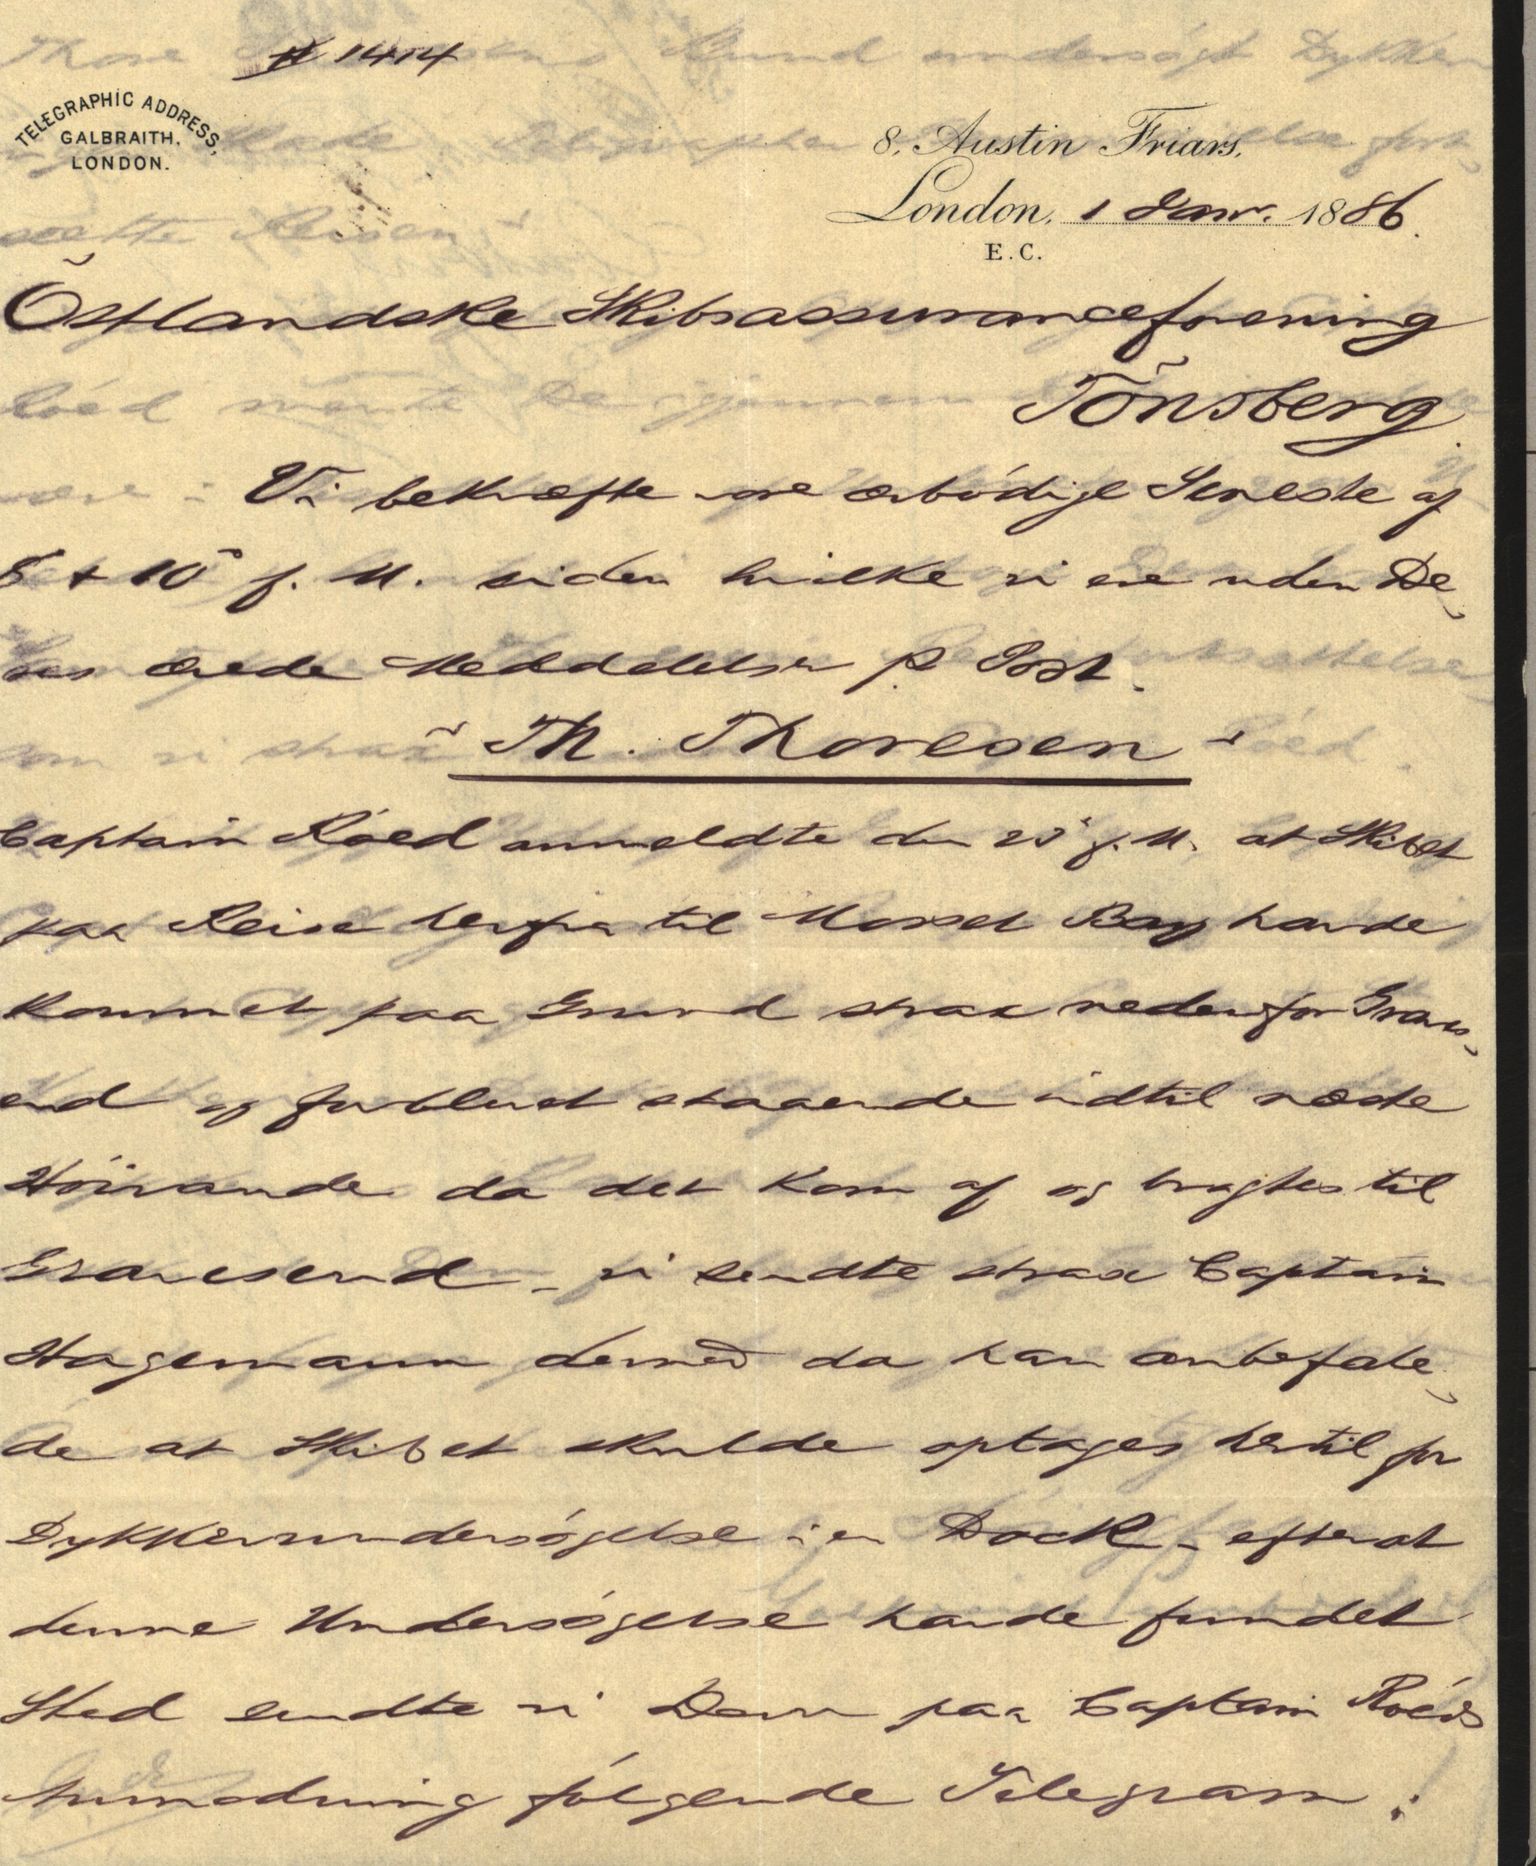 # 1414
TELEGRAPHIC ADDRESS,
GALBRAITH,
LONDON.
8, Austin Friars,
London, 1 Janr. 1886.
E.C.
Östlandske Skibsassuranceforening
Tönsberg.
Vi bekræfte vore ærbödige Seneste af
8 & 10 f. M. siden hvilke vi ere uden De-
res ærede Meddelelser p Post.
"Th. Thoresen"
Captain Röed anmeldte den 25 f. M. at Skibet
paa Reise herfra til Mossel Bay havde
kommet paa Grund strax nedenfor Graves-
end og forblevet staaende indtil næste
Höivande da det kom af og bragtes til
Gravesend – vi sendte strax Captain
Hagemann derned da han anbefale-
de at Skibet skulde optages hertil for
Dykkerundersögelse i en Dock – efterat
denne Undersögelse havde fundet
Sted sendte vi Dem paa Captain Röeds
Anmodning fölgende Telegram: